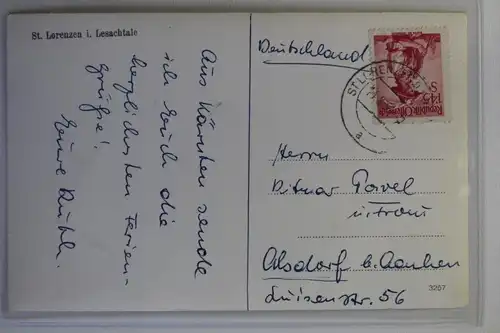 St. Lorenzen i. Lesachtale
Aus Kärnten sende
ich Euch die
herzlichsten Ferien-
grüße!
Eure Ruth.
Deutschland
ST. LOREN
a
Republik Österreich
S 1.45
Herrn
Ditmar Pavel
u. Frau
Alsdorf b. Aachen
Luisenstr. 56
3257